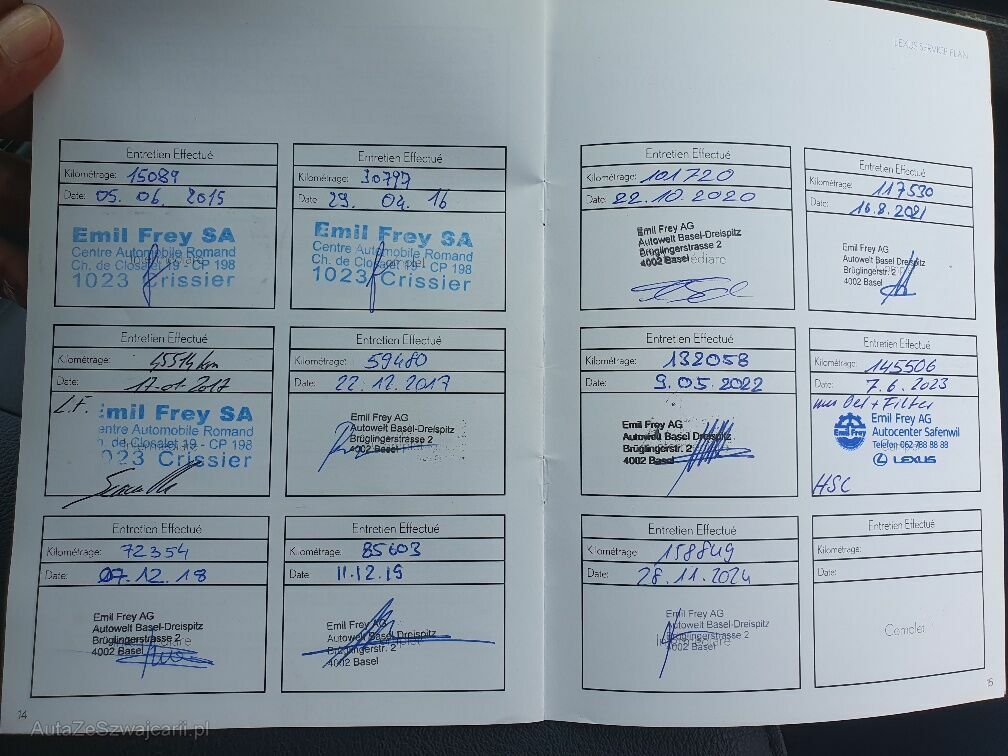 LEXUS SERVICE PLAN
Entretien Effectué
Kilométrage: 15089
Date: 05. 06. 2015
Emil Frey SA
Centre Automobile Romand
Ch. de Closalet 19 - CP 198
1023 Crissier
Entretien Effectué
Kilométrage: 30797
Date: 29. 04. 16
Emil Frey SA
Centre Automobile Romand
Ch. de Closalet 19 - CP 198
1023 Crissier
Entretien Effectué
Kilométrage: 45514 km
Date: 17.01.2017
L.F.
Emil Frey SA
entre Automobile Romand
de Closalet 19 - CP 198
023 Crissier
Entretien Effectué
Kilométrage: 59480
Date: 22.12.2017
Emil Frey AG
Autowelt Basel-Dreispitz
Brüglingerstrasse 2
4002 Basel
Entretien Effectué
Kilométrage: 72354
Date: 07.12.18
Emil Frey AG
Autowelt Basel-Dreispitz
Brüglingerstrasse 2
4002 Basel
Entretien Effectué
Kilométrage: 85603
Date: 11.12.19
Emil Frey AG
Autowelt Basel-Dreispitz
Brüglingerstr. 2
4002 Basel
14
Entretien Effectué
Kilométrage: 101720
Date: 22.10.2020
Emil Frey AG
Autowelt Basel-Dreispitz
Brüglingerstrasse 2
4002 Basel
Entretien Effectué
Kilométrage: 117530
Date: 16.8.2021
Emil Frey AG
Autowelt Basel-Dreispitz
Brüglingerstr. 2
4002 Basel
Entretien Effectué
Kilométrage: 132058
Date: 9.05.2022
Emil Frey AG
Autowelt Basel Dreispitz
Brüglingerstr. 2
4002 Basel
Entretien Effectué
Kilométrage: 145506
Date: 7.6.2023
nur Oel + Filter
Emil Frey
Emil Frey AG
Autocenter Safenwil
Telefon 062 788 88 88
LEXUS
HSC
Entretien Effectué
Kilométrage: 158849
Date: 28.11.2024
Emil Frey AG
Autowelt Basel-Dreispitz
Brüglingerstrasse 2
4002 Basel
Entretien Effectué
Kilométrage:
Date:
Complet
15
AutaZeSzwajcarii.pl